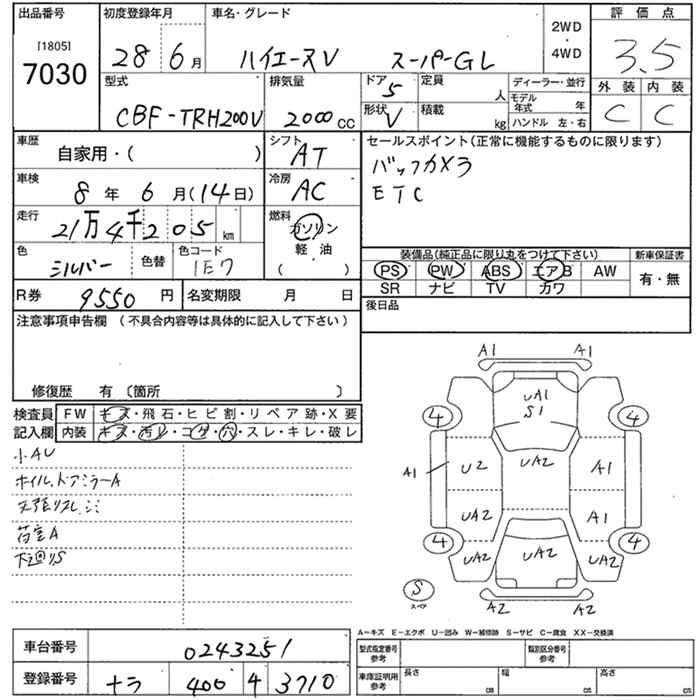 出品番号 初度登録年月 車名・グレード 評価点
[1805]
7030 28 6月 ハイエースV スーパーGL 2WD・4WD 3.5
外装 内装
型式 排気量 ドア 5 定員 人 ディーラー・並行 C C
CBF-TRH200V 2000cc 形状 V 積載 kg モデル年式 年
ハンドル 左・右
車歴 シフト セールスポイント(正常に機能するものに限ります)
自家用・( ) AT バックカメラ
車検 冷房 ETC
8年 6月(14日) AC
走行 燃料
21万4千205km ガソリン
色 色替 色コード 軽・油 装備品(純正品に限り丸をつけて下さい) 新車保証書
シルバー 1E7 ( ) PS PW ABS エアB AW 有・無
R券 9550円 名変期限 月 日 SR ナビ TV カワ
後日品
注意事項申告欄(不具合内容等は具体的に記入して下さい)
修復歴 有〔箇所 〕
検査員 FW キズ・飛石・ヒビ割・リペア跡・X要
記入欄 内装 キズ・汚レ・コゲ・穴・スレ・キレ・破レ
小AU
ホイル、ドアミラーA
天張リスレ、シミ
荷室A
下廻りS
A1 A1
UA1
S1
4 4
A1 U2 UA2 A1
UA2 A1
4 4
UA2 UA2 UA2
S
スペア
A2 A2
A-キズ E-エクボ U-凹み W-補修跡 S-サビ C-腐食 XX-交換済
車台番号 0243251
型式指定番号 参考 類別区分番号 参考
登録番号 ナラ 400 4 3710
車庫証明用 参考 長さ cm 幅 cm 高さ cm